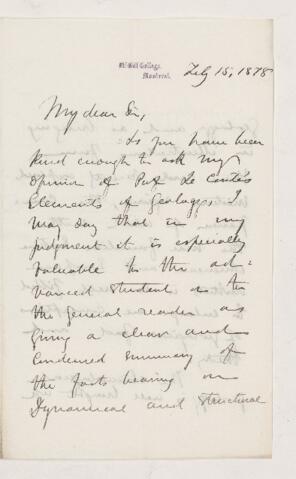 McGill College,
Montreal.
July 15, 1878
My dear Sir,
As you have been
kind enough to ask my
opinion of Prof Le Conte's
Elements of Geology, I
may say that in my
judgment it is especially
valuable to the ad-
vanced student or to
the general reader as
giving a clear and
condensed summary of
the facts bearing on
Dynamical and Structural